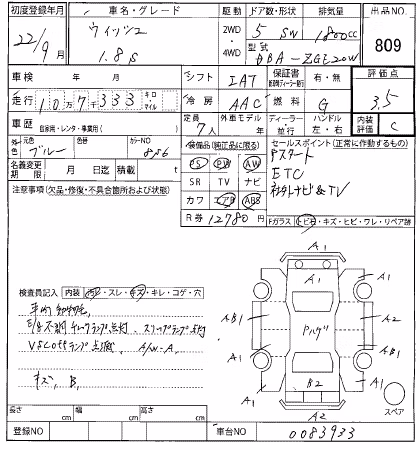 初度登録年月 車名・グレード 駆動 ドア数・形状 排気量 出品NO.
22/9月 ウィッシュ 1.8S 2WD・4WD 5 SW 1800cc 809
型式 DBA-ZGE20W
車検 年 月 シフト IAT 保証書 有・無 評価点 3.5
走行 10万7千333 キロ マイル 冷房 AAC 燃料 G
車歴 自家用・レンタ・事業用( ) 定員 7人 外車モデル 年 ディーラー・並行 ハンドル 左・右 内装評価 C
外色 元色 ブルー 色替 カラーNO 8S6
装備品(純正品に限る) セールスポイント(正常に作動するもの)
名義変更期限 月 日迄 積載 t PS PW AW Pスタート
SR TV ナビ ETC
注意事項(欠品・修復・不具合箇所および状態) カワ エアB ABS 社外ナビ&TV
R券 12780円
Fガラス トビ石・キズ・ヒビ・ワレ・リペア跡
検査員記入 内装 汚・スレ・キズ・キレ・コゲ・穴
E/G不調 チェックランプ点灯、スリップランプ点灯
VSCoffランプ点滅、A/W-A
キズ、B
A1
A1 A1
AB1 Pルーフ A2
A1 AB1
A1 B2 A1
A2 スペア
長さ cm 幅 cm 高さ cm
登録NO 車台NO 0083933